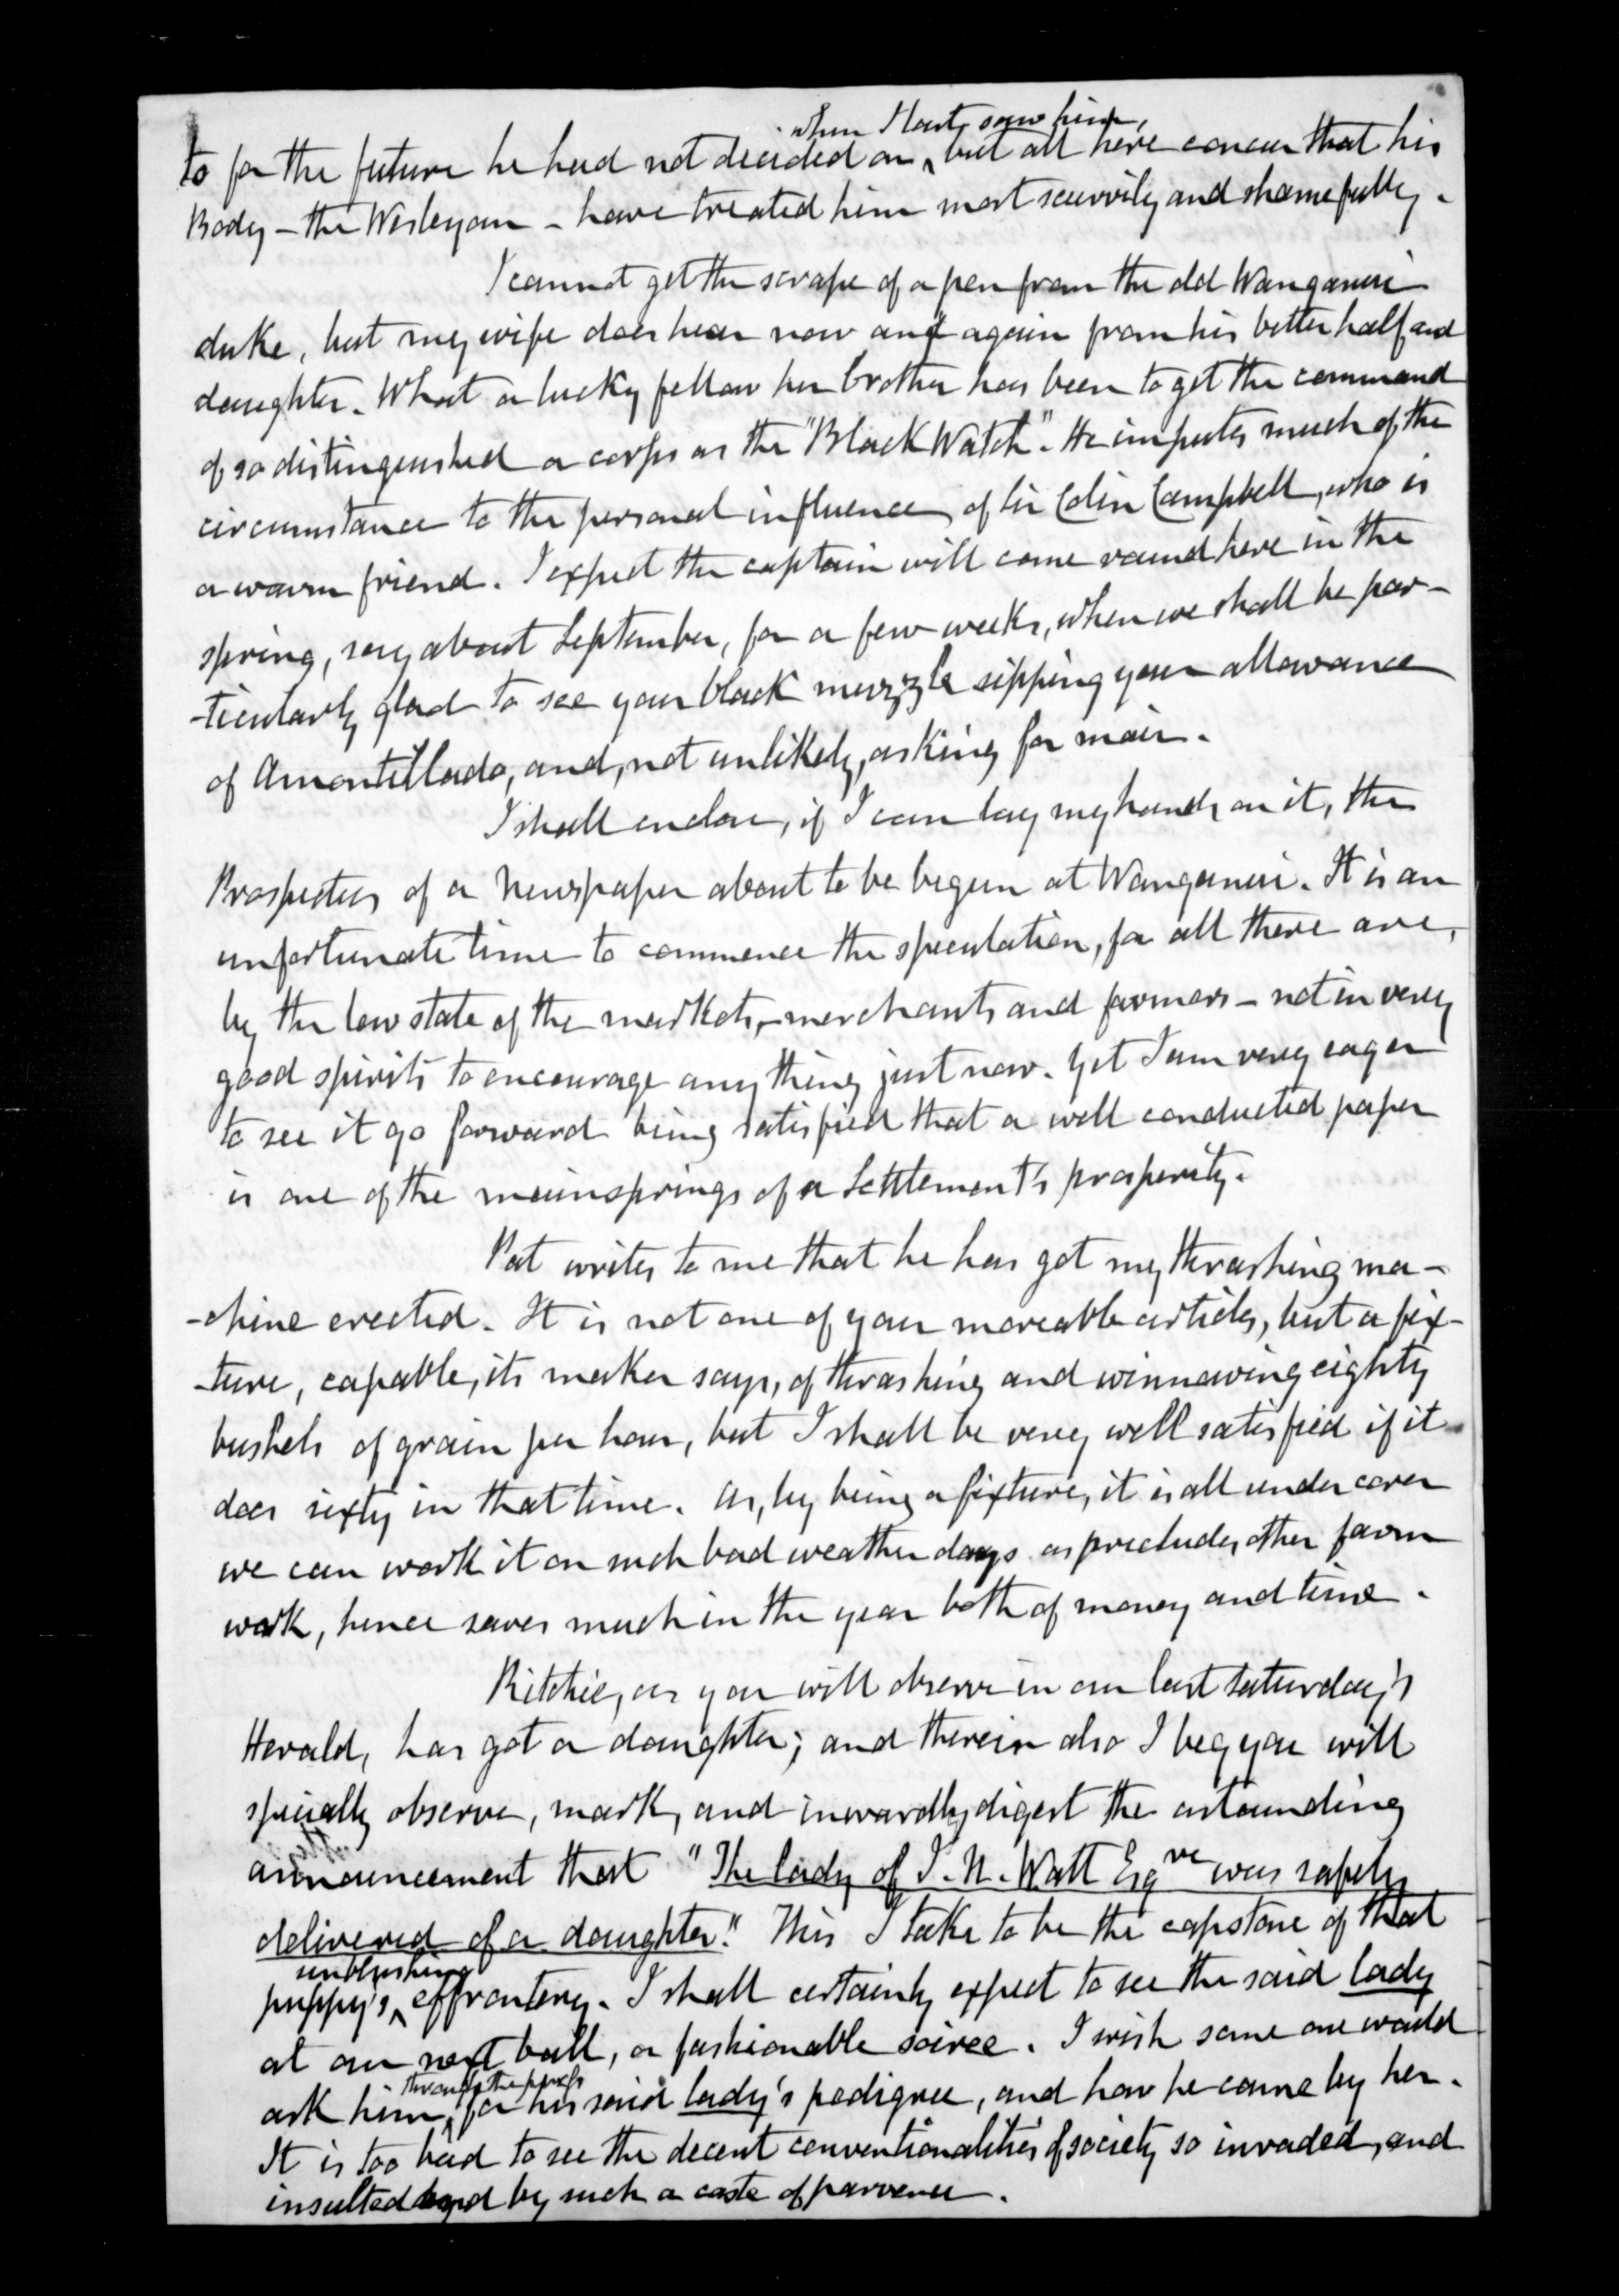 when I last saw him,
to for the future he had not decided on, but all here concur that his
Body – the Wesleyan – have treated him most scurvily and shamefully.
I cannot get the scrape of a pen from the old Wanganui
duke, but my wife does hear now and again from his better half and
daughter. What a lucky fellow her brother has been to get the command
of so distinguished a corps as the "Black Watch". He imputes much of the
circumstance to the personal influence of Sir Colin Campbell, who is
a warm friend. I expect the captain will come round here in the
spring, say about September, for a few weeks, when we shall be par-
-ticularly glad to see your black muzzle sipping your allowance
of Amontillado, and, not unlikely, asking for mair.
I shall enclose, if I can lay my hands on it, the
Prospectus of a Newspaper about to be begun at Wanganui. It is an
unfortunate time to commence the speculation, for all there are,
by the low state of the markets, – merchants and farmers – not in very
good spirits to encourage any thing just now. Yet I am very eager
to see it go forward being satisfied that a well conducted paper
is one of the mainsprings of a Settlement's prosperity.
Pat writes to me that he has got my thrashing ma-
-chine erected. It is not one of your moveable articles, but a fix-
-ture, capable, its maker says, of thrashing and winnowing eighty
bushels of grain per hour, but I shall be very well satisfied if it
does sixty in that time. As, by being a fixture, it is all under cover
we can work it on such bad weather days as precludes other farm
work, hence saves much in the year both of money and time.
Ritchie, as you will observe in our last Saturday's
Herald, has got a daughter; and therein also I beg you will
specially observe, mark, and inwardly digest the astounding
announcement that "The lady of I. N. Watt Esqre was safely
delivered of a daughter." This I take to be the capstone of that
unblushing
puppy's effrontery. I shall certainly expect to see the said lady
at our next ball, or fashionable soiree. I wish some one would
through the press
ask him, for his said lady's pedigree, and how he came by her.
It is too bad to see the decent conventionalities of society so invaded, and
insulted by such a caste of parvenu.